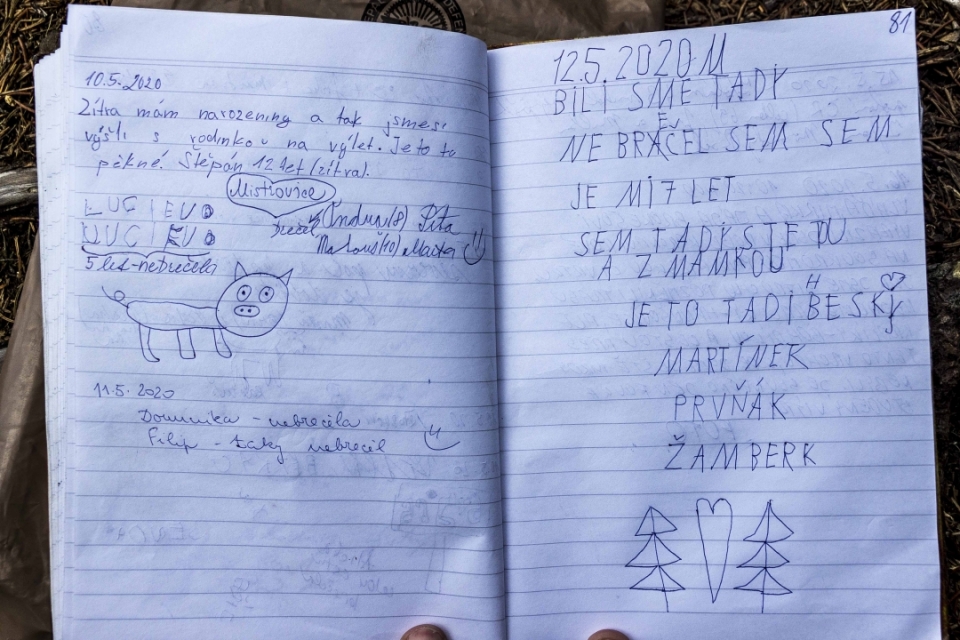 10.5.2020
Zítra mám narozeniny a tak jsme si
vyšli s rodinkou na výlet. Je to tu
pěkné. Štěpán 12 let (zítra).
Mistrovice
LUCIE
LUCIE
(8) Píťa
Matouš (10)
5 let - nebrečela
11.5.2020
Dominika - nebrečela
Filip - taky nebrečel
81
12.5.2020
BILI SME TADY
NE BRAČEL SEM SEM
JE MI 7 LET
SEM TADY S TETU
A Z MAMKOU
H
JE TO TADI BESKÝ
MARTÍNEK
PRVŇÁK
ŽAMBERK